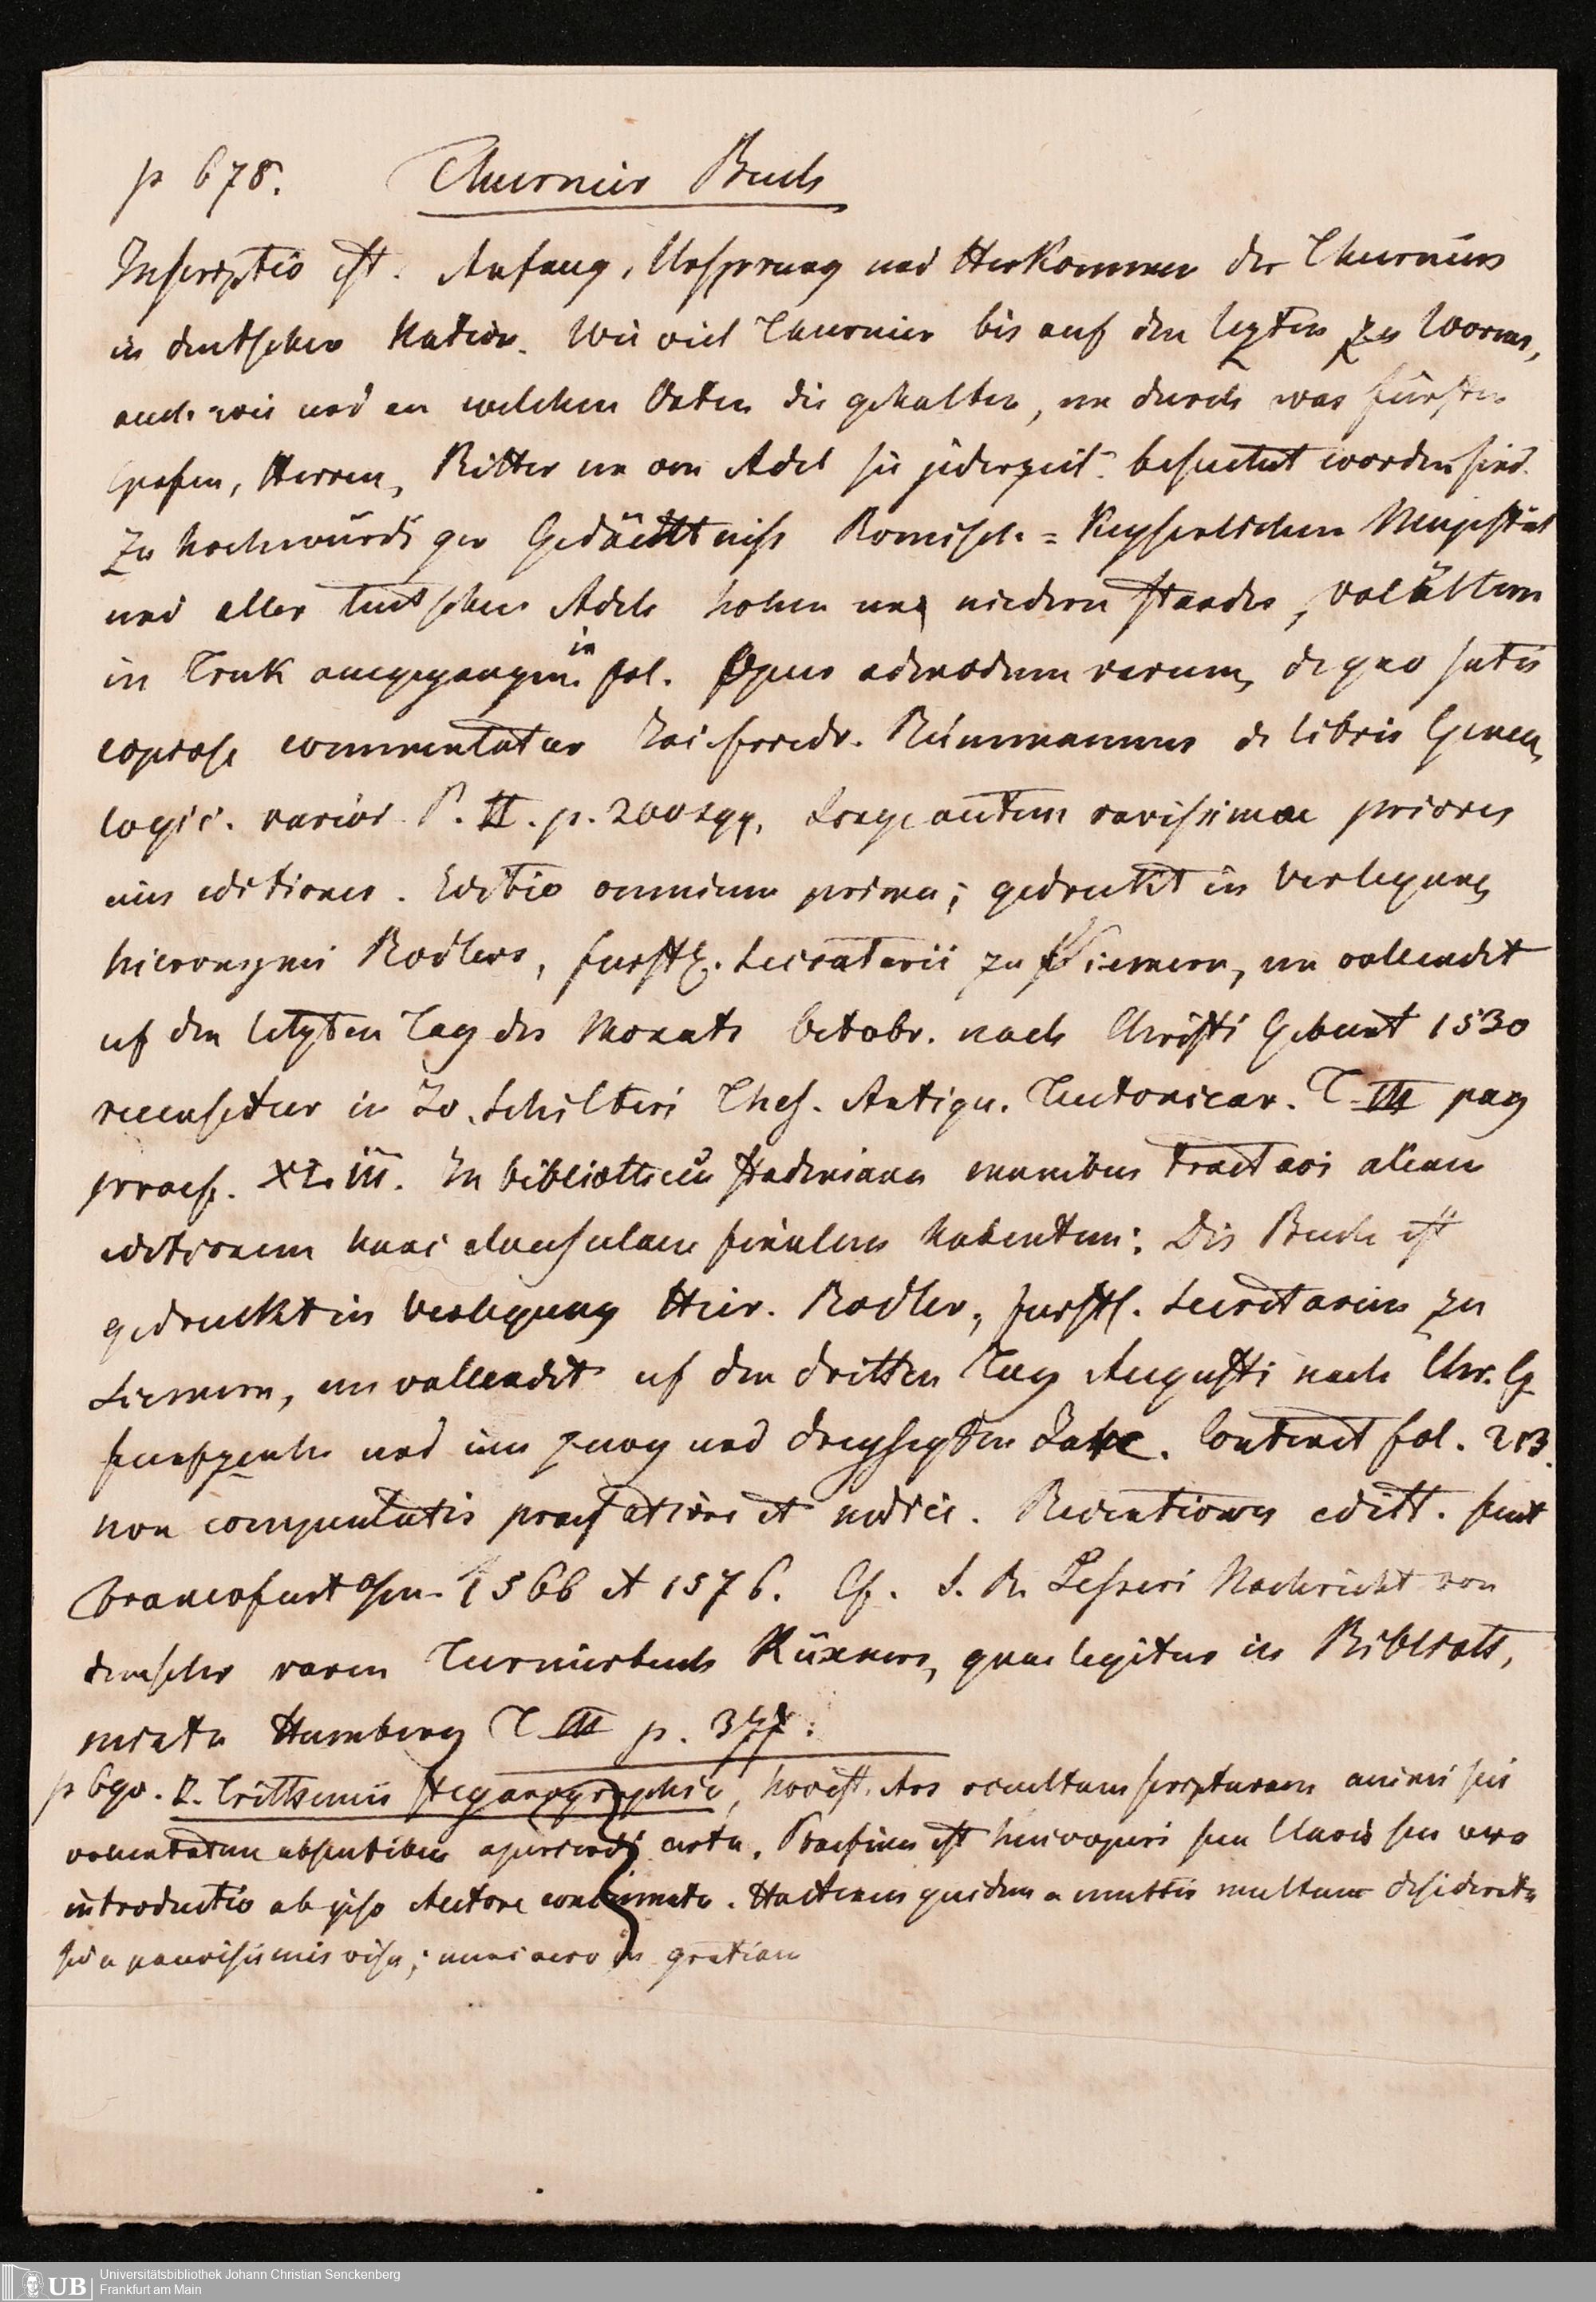 p 678. Thurnier Buch
Inscriptio est. Anfang, Ursprung und Herkommen der Thurniers
in deutscher Nation. Wie viel Thurnier bis auf den lezten zu Worms,
auch wie und an welchen Orten die gehalten, un durch was fürsten
Grafen, Herren, Ritter un vom Adel sie jederzeit besuchet worden sind.
Zu hochwürdiger Gedächtniss Romisch = Keyserlichen Majestät
und aller teutschen Adels hohen und niedern standes,
in Truk ausgegangen. in fol. Opus admodum rarum, de quo satis
copiose commentatur Friedr. de libris Genea
logic. rarior P. II. p. 200 sqq. longe autem rarissimae priores
eius editiones. Editio omnium prima; gedruckt in Verlegung
hieronymi Rodlers, furstl. Secretarii zu Siemern, un vollendet
uf den letzten Tag des Monats Octobr. nach Christi Geburt 1530
recensetur in Jo. Schilteri Thes. Antiqu. Teutonicar. T. III pag
praef. XLIII. In bibliotheca Stadeniana manibus tractavi aliam
editionem hanc clausulam finalem habentem: Dis Buch ist
gedruckt in Verlegung Hier. Rodler, furstl. Secretarius zu
Siemern, un vollendet uf den dritten Tag Augusti nach Chr. G
funfzenhe und im zwey und dreyssigsten Jahre. Continet fol. 213.
non computatis praefatione et indice. Recentiores editt. sunt
Francofurt 1566 et 1576. Cf. Lesseri Nachricht von
raren Turnierbuch Rüxners, quae legitur in Biblioth,
Hamberg T III p. 377.
p 690. Trithemii Steganographia, hoc est. Ars occultam scripturam animi sui
voluntatem absentibus aperiendi certa. Praefixa est huic operi sua Clavis seu vera
introductio ab ipso Auctore concinnata. Hactenus quidem a multis multum desiderata
sed a paucissimis visa; nunc vero in gratiam
Universitätsbibliothek Johann Christian Senckenberg
UB Frankfurt am Main